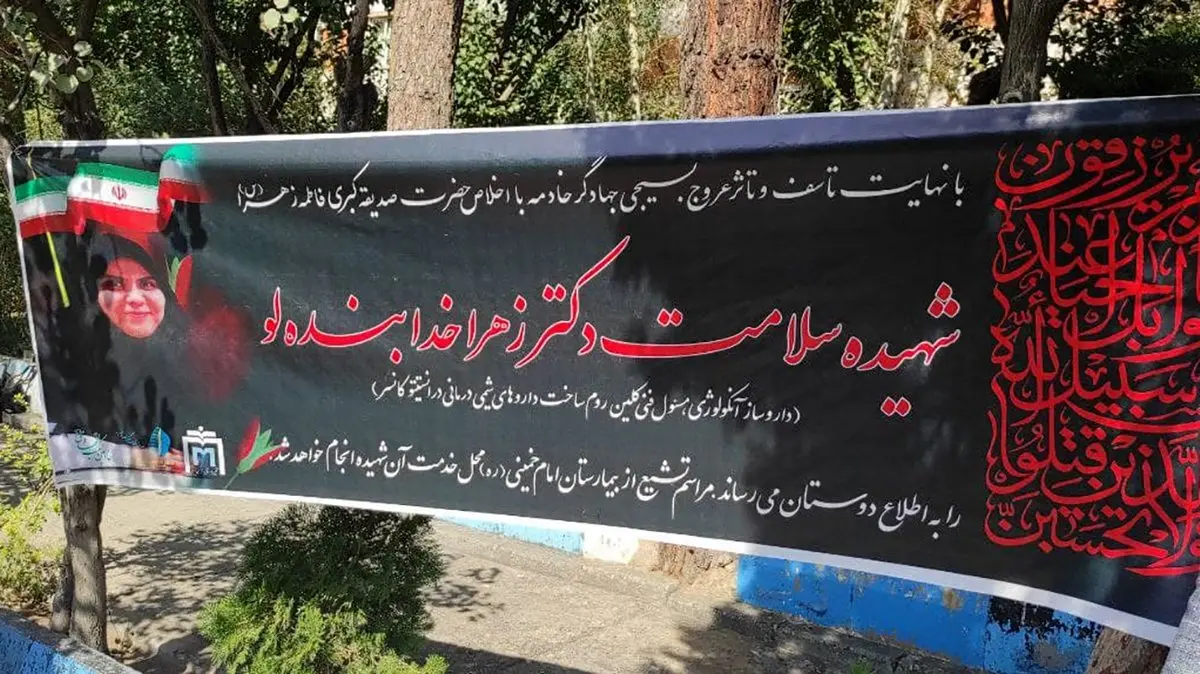 با نهایت تاسف و تاثر عروج بسیجی جهادگر خادمه با اخلاص حضرت صدیقه کبری فاطمه زهرا (س)
شهیده سلامت دکتر زهرا خدابنده لو
(داروساز آنکولوژی مسئول فنی کلین روم ساخت داروهای شیمی درمانی در انستیتو کانسر)
را به اطلاع دوستان می رساند. مراسم تشیع از بیمارستان امام خمینی (ره) محل خدمت آن شهیده انجام خواهد شد.
ولا تحسبن
الذین قتلوا
سبیل الله
بل احیاء عند
یرزقون